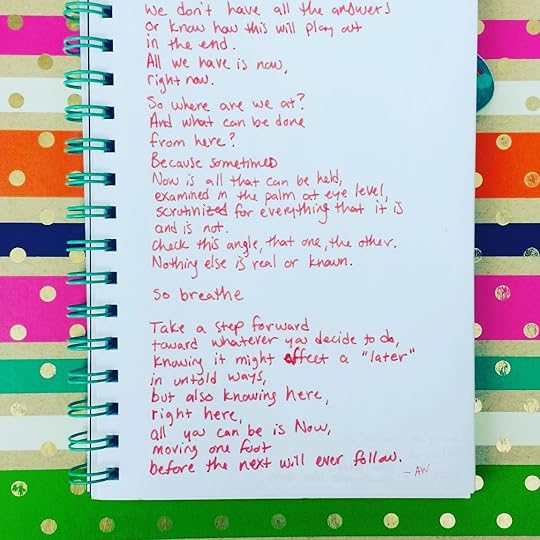 We don't have all the answers
Or know how this will play out
in the end.
All we have is now,
right now.
So where are we at?
And what can be done
from here?
Because sometimes
Now is all that can be held,
examined in the palm at eye level,
scrutinized for everything that it is
and is not.
Check this angle, that one, the other.
Nothing else is real or known.
So breathe
Take a step forward
toward whatever you decide to do,
knowing it might effect a "later"
in untold ways,
but also knowing here,
right here,
all you can be is Now,
moving one foot
before the next will ever follow.
-AW